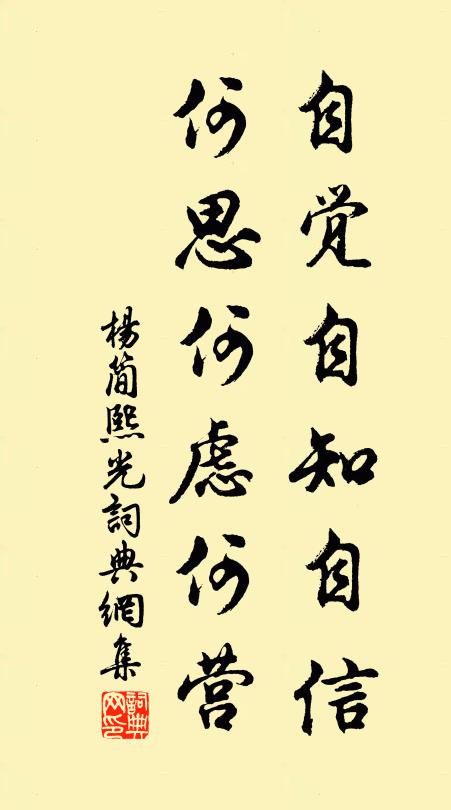 自觉自知自信
何思何虑何营
楊简熙光詞典網集
詞典网印